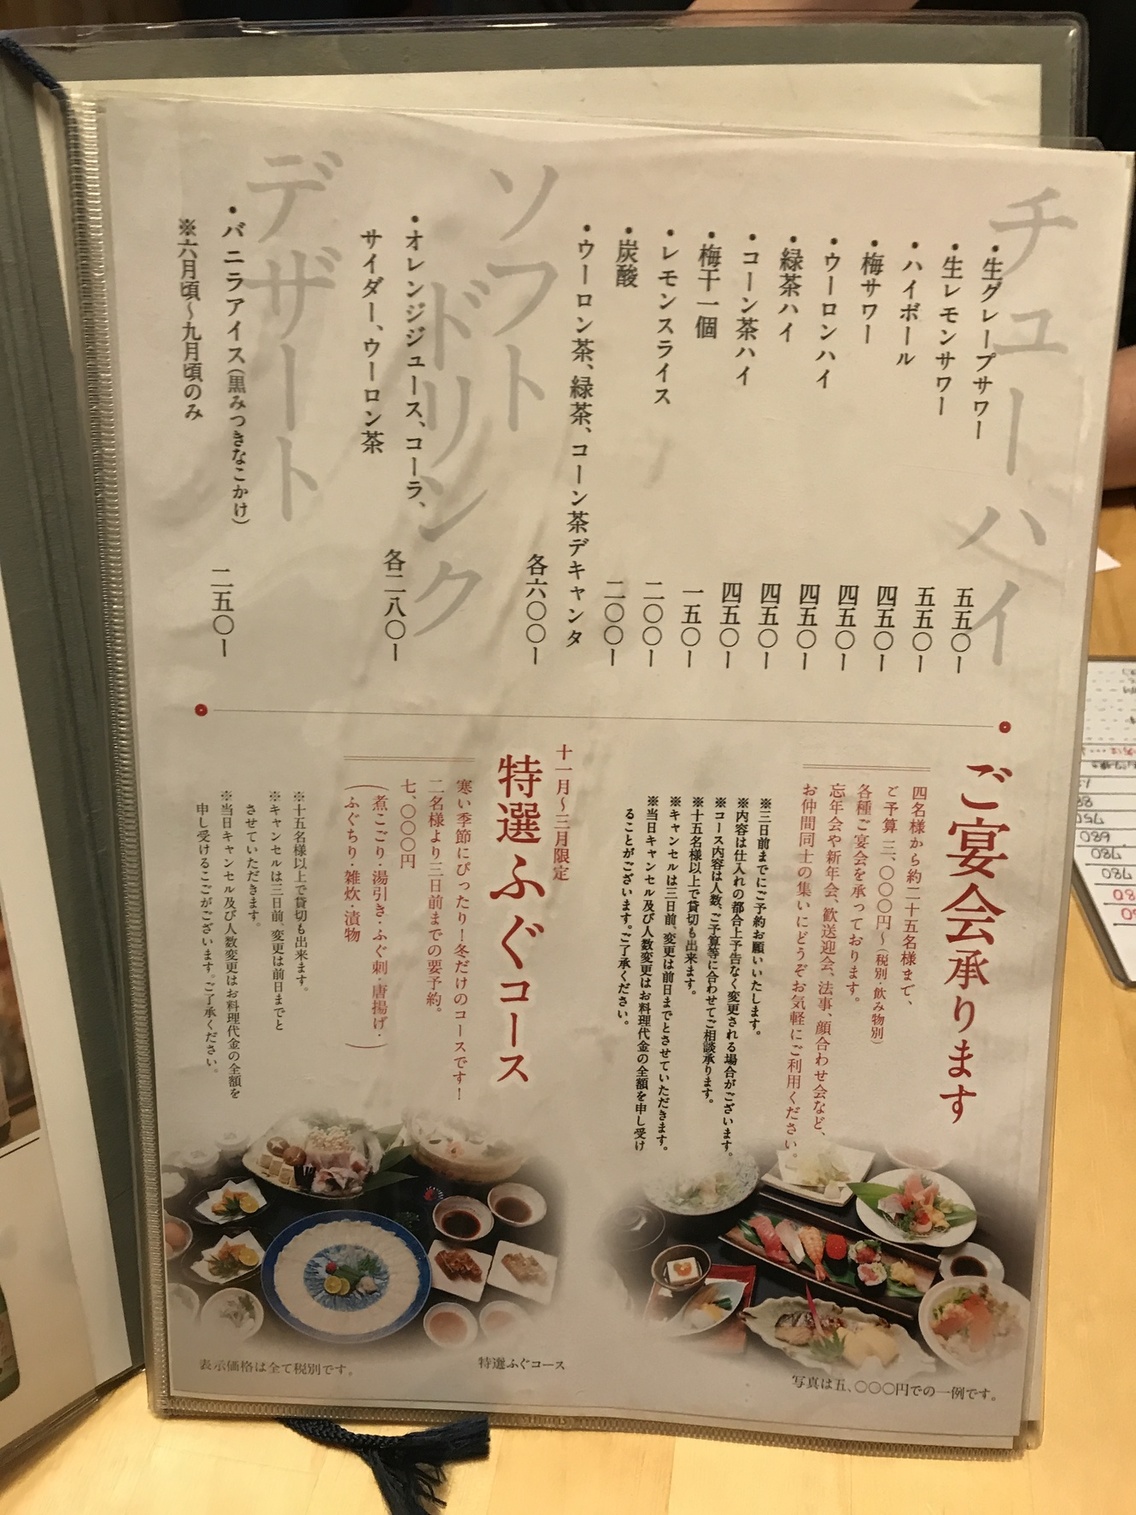 チューハイ
・生グレープサワー 五五〇ー
・生レモンサワー 五五〇ー
・ハイボール 四五〇ー
・梅サワー 四五〇ー
・ウーロンハイ 四五〇ー
・緑茶ハイ 四五〇ー
・コーン茶ハイ 四五〇ー
・梅干一個 一五〇ー
・レモンスライス 二〇〇ー
・炭酸 二〇〇ー
・ウーロン茶、緑茶、コーン茶デキャンタ
各六〇〇ー
ソフト
ドリンク
・オレンジジュース、コーラ、
サイダー、ウーロン茶
各二八〇ー
デザート
・バニラアイス(黒みつきなこかけ) 二五〇ー
※六月頃〜九月頃のみ
ご宴会承ります
四名様から約二十五名様まで、
ご予算 三、〇〇〇円〜(税別・飲み物別)
各種ご宴会を承っております。
忘年会や新年会、歓送迎会、法事、顔合わせ会など、
お仲間同士の集いにどうぞお気軽にご利用ください。
※三日前までにご予約お願いいたします。
※内容は仕入れの都合上予告なく変更される場合がございます。
※コース内容は人数、ご予算等に合わせてご相談承ります。
※十五名様以上で貸切も出来ます。
※キャンセルは三日前、変更は前日までとさせていただきます。
※当日キャンセル及び人数変更はお料理代金の全額を申し受け
ることがございます。ご了承ください。
写真は五、〇〇〇円での一例です。
十一月〜三月限定
特選ふぐコース
寒い季節にぴったり!冬だけのコースです!
二名様より三日前までの要予約。
七、〇〇〇円
(煮こごり・湯引き・ふぐ刺・唐揚げ・
ふぐちり・雑炊・漬物)
※十五名様以上で貸切も出来ます。
※キャンセルは三日前、変更は前日までと
させていただきます。
※当日キャンセル及び人数変更はお料理代金の全額を
申し受けるこごがございます。ご了承ください。
特選ふぐコース
表示価格は全て税別です。